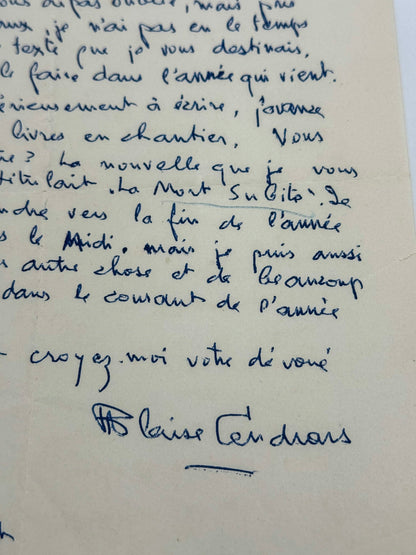 ous ai pas oublié, mais pris
aux, je n'ai pas eu le temps
texte que je vous destinais,
le faire dans l'année qui vient.
érieusement à écrire, j'avance
livres en chantier. Vous
re? La nouvelle que je vous
titulait "La Mort Subite". Je
endre vers la fin de l'année
s le Midi. mais je puis aussi
autre chose et de beaucoup
dans le courant de l'année
croyez-moi votre dévoué
Blaise Cendrars